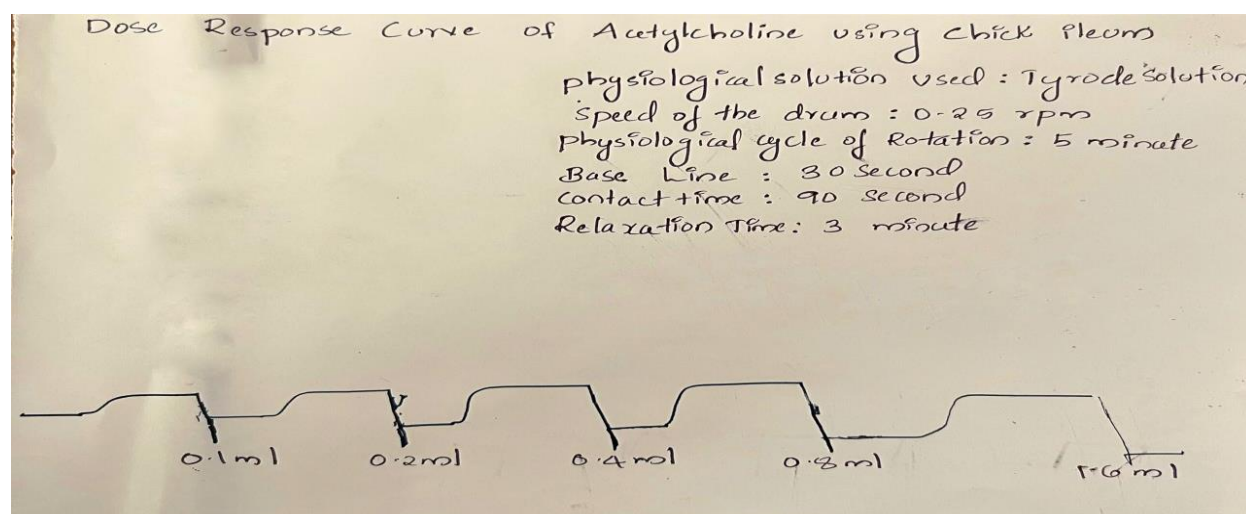 Dose Response Curve of Acetylcholine using chick ileum
physiological solution used : Tyrode solution
speed of the drum : 0.25 rpm
physiological cycle of Rotation : 5 minute
Base Line : 30 Second
contact time : 90 second
Relaxation Time : 3 minute
0.1ml 0.2ml 0.4ml 0.8ml 1.6ml